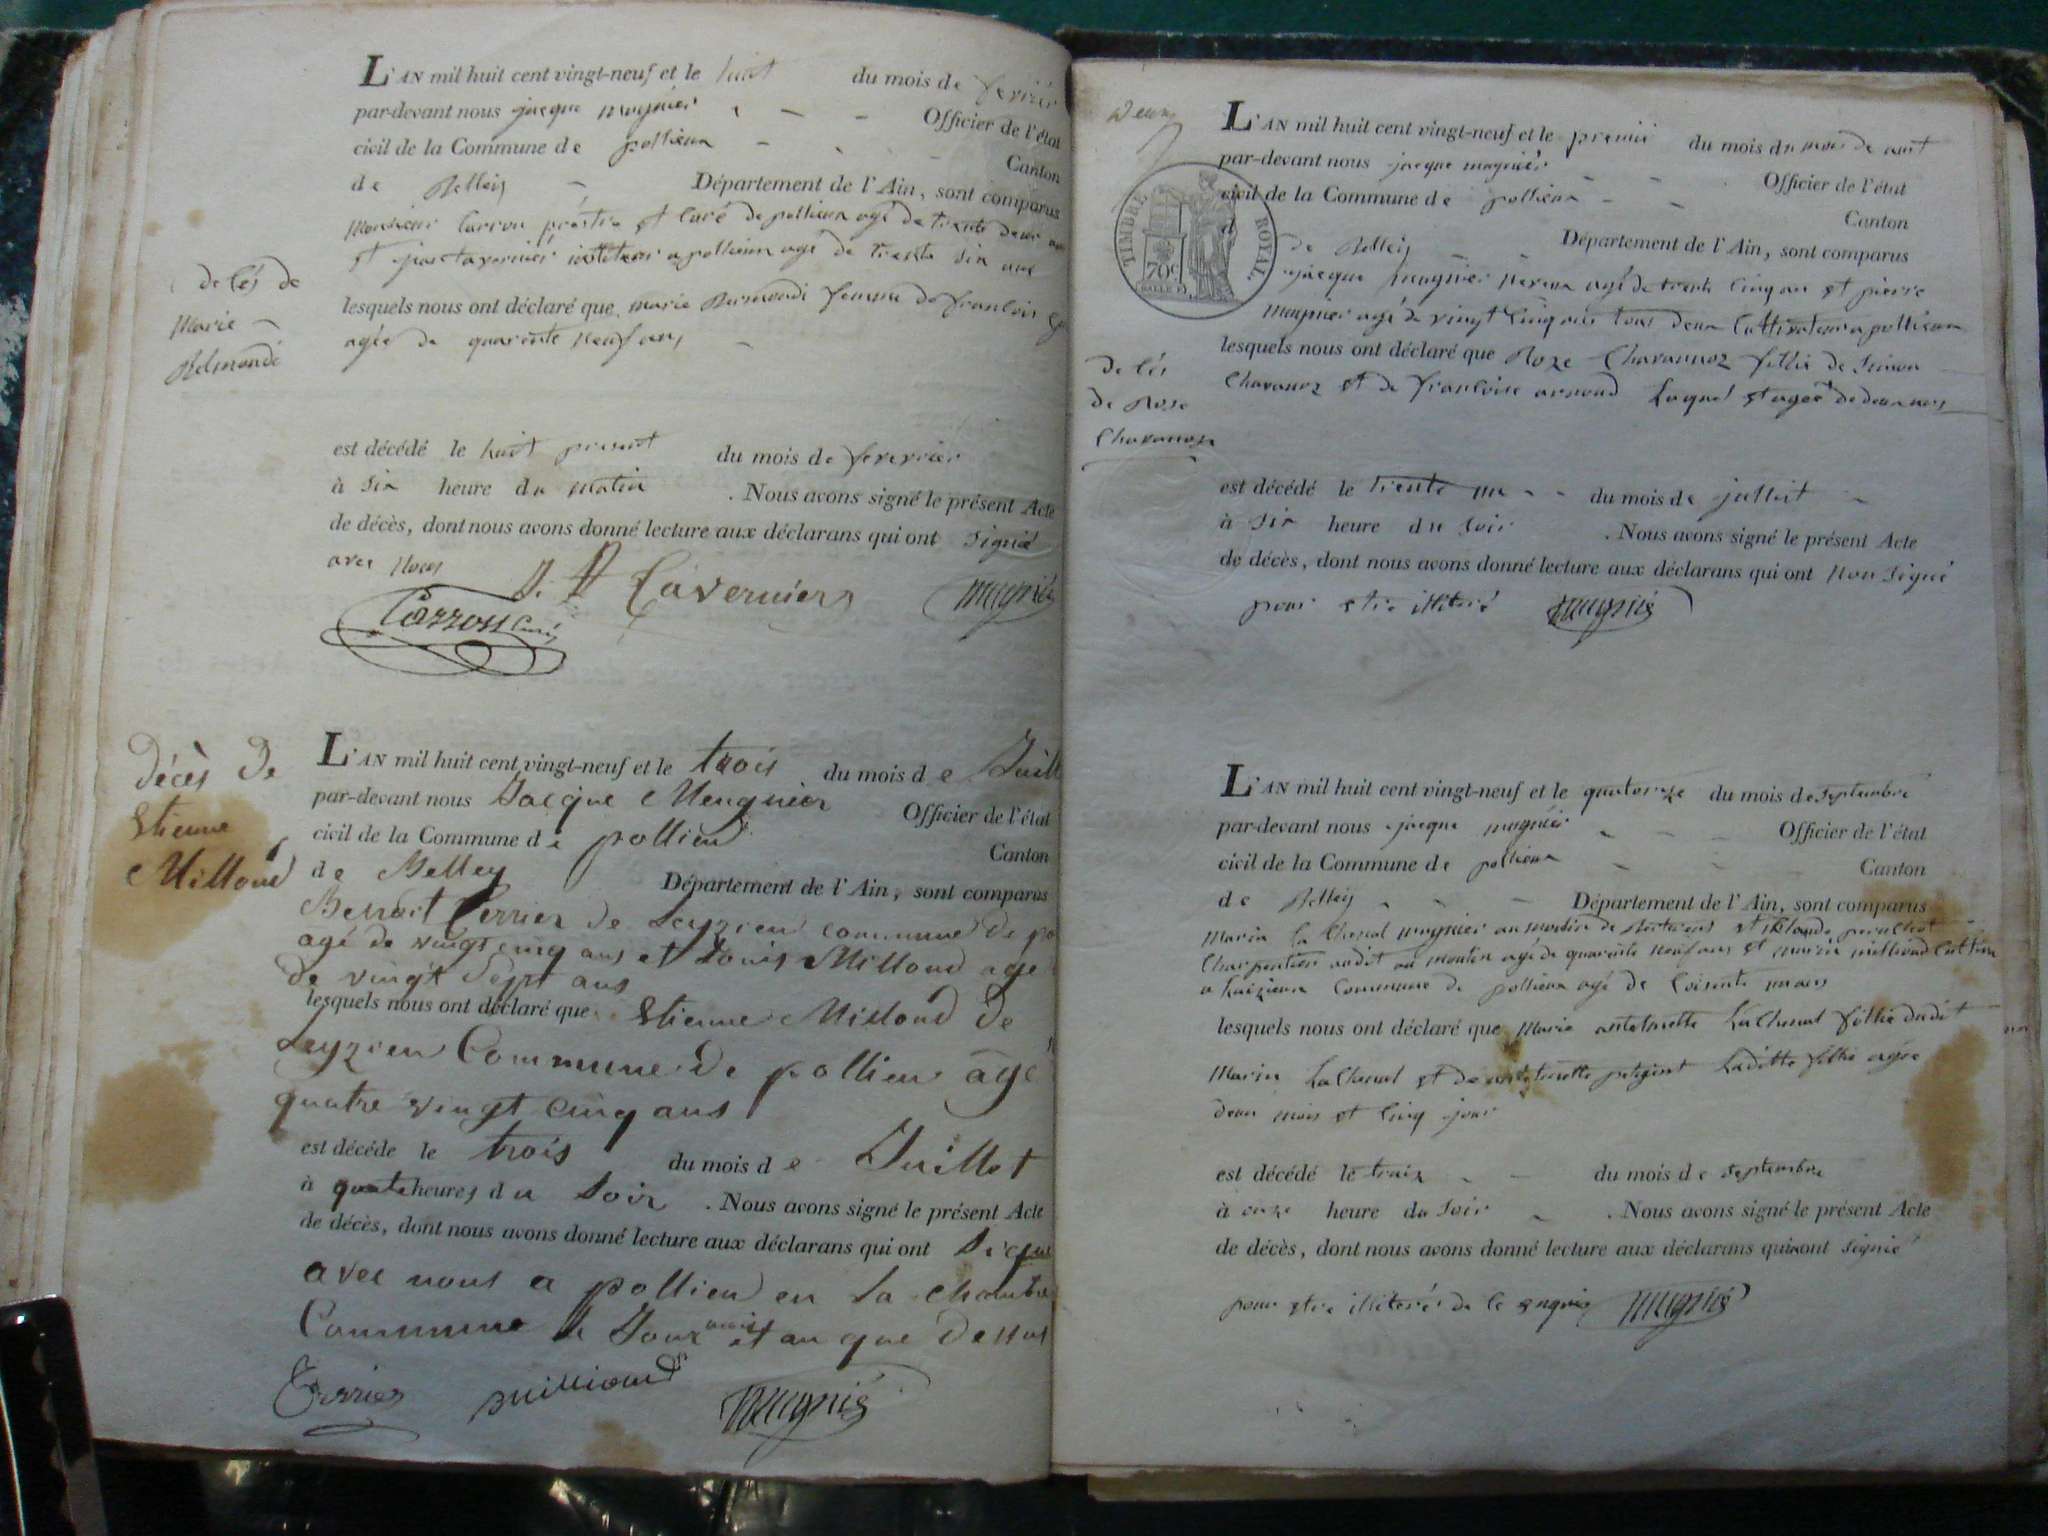 L'AN mil huit cent vingt-neuf et le huit du mois de fevrier
par-devant nous jacque mugnier Officier de l'état
civil de la Commune de pollieux Canton
de Belley Département de l'Ain, sont comparus
Monsieur Carron prêtre et Curé de pollieux agé de trente deux
et tavernier a pollieux agé de trente six ans
lesquels nous ont déclaré que marie femme de francois
agée de quarente neuf ans
de Cés de
Marie
est décédé le huit present du mois de fevervrier
à six heure du matin . Nous avons signé le présent Acte
de décès, dont nous avons donné lecture aux déclarans qui ont signié
avec Nous J. Taverniers mugnié
Carron Curé
décès de
Etienne
Milloud
L'AN mil huit cent vingt-neuf et le trois du mois de Juill
par-devant nous Jacque Meugnier Officier de l'état
civil de la Commune de pollieu Canton
de Belley Département de l'Ain, sont comparus
Benoit Perrier de Leyzieu commune de po
agé de vingt cinq ans et Louis Milloud age
de vingt sept ans
lesquels nous ont déclaré que Etienne Milloud de
Leyzieu Commune de pollieu agé
quatre vingt cinq ans
est décédé le trois du mois de Juillet
à quatreheures du soir . Nous avons signé le présent Acte
de décès, dont nous avons donné lecture aux déclarans qui ont signé
avec nous a pollieu en la chambre
Commune le Jour mois et an que dessus
Perrier millioud mugnié
Deux
TIMBRE ROYAL
70c
L'AN mil huit cent vingt-neuf et le premié du mois du mois de aout
par-devant nous jacque mugniér Officier de l'état
civil de la Commune de pollieux Canton
de Belley Département de l'Ain, sont comparus
jacque mugnier neveux agé de trente cinq an et pierre
mugnier agé de vingt cinq ans tous deux Cultivateur a pollieux
lesquels nous ont déclaré que Roze Chavannoz fillie de Simon
Chavanoz et de francoise arnoud Laquel et agée de deux
de Cés
de Rose
Chavanoz
est décédé le trente un du mois de julliet
à six heure du soir . Nous avons signé le présent Acte
de décès, dont nous avons donné lecture aux déclarans qui ont non signé
pour etre illiteré mugnié
L'AN mil huit cent vingt-neuf et le quatorze du mois de septembre
par-devant nous jacque mugniér Officier de l'état
civil de la Commune de pollieux Canton
de Belley Département de l'Ain, sont comparus
Marin La Chenal mugnier au moulin de et Claude
Charpentier audit au moulin agé de quarente neuf ans et marin millioud
a Commune de pollieux agé de soisente un ans
lesquels nous ont déclaré que Marie antoinette LaChenal fillie dudit
Marin LaChenal et de antoinette Laditte fillie agée
deux mois et cinq jour
est décédé le treize du mois de septembre
à onze heure du soir . Nous avons signé le présent Acte
de décès, dont nous avons donné lecture aux déclarans qui nont signié
pour etre illiteré de le enquis mugnié